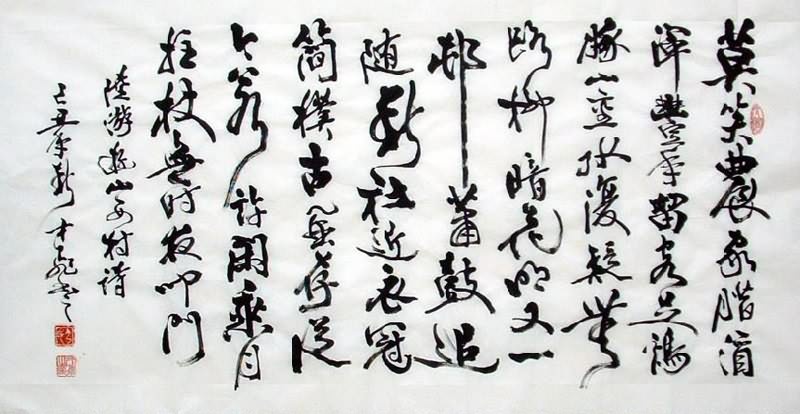 莫笑農家腊酒
渾豐年留客足鷄
豚山重水復疑無
路柳暗花明又一
邨簫鼓追
随春社近衣冠
簡樸古風存從
今若許閑乘月
拄杖無时夜叩門
陸游遊山西村詩
己丑年春才飛書